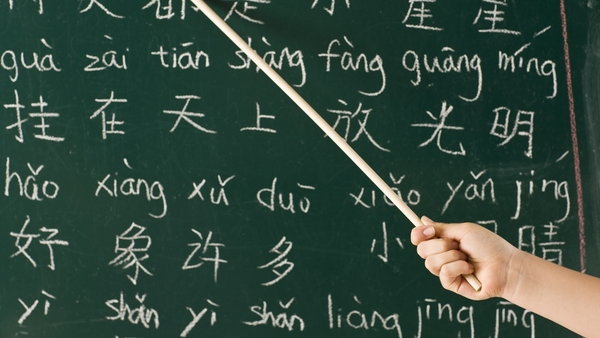 天 是 星 星
guà zài tiān shàng fàng guāng míng
挂 在 天 上 放 光 明
hǎo xiàng xǔ duō xiǎo yǎn jīng
好 象 许 多 小 睛
yì shǎn yì shǎn liàng jīng jīng